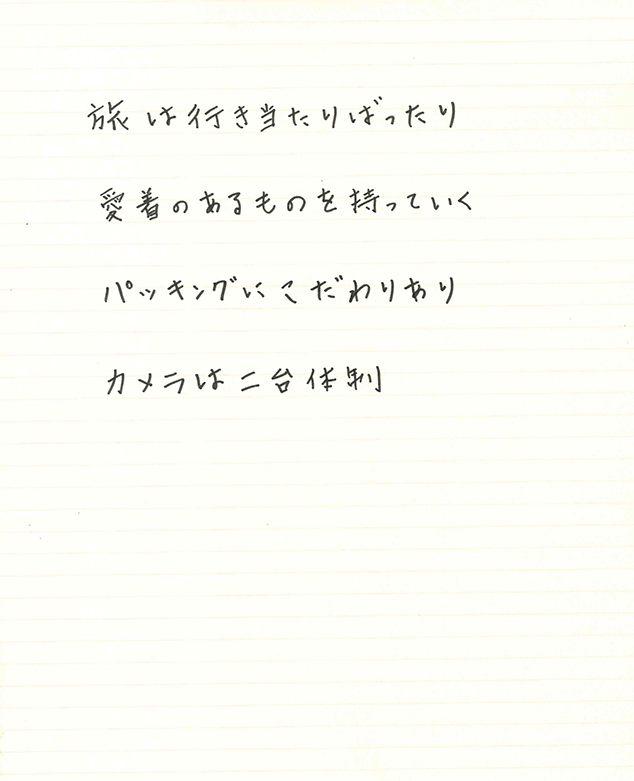 旅は行き当たりばったり
愛着のあるものを持っていく
パッキングにこだわりあり
カメラは二台体制